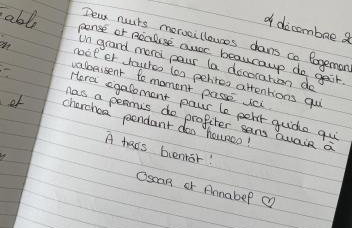 able
4 décembre 2
Deux nuits merveilleuses dans ce logement
pensé et réalisé avec beaucoup de goût.
Un grand merci pour la décoration de
noël et toutes les petites attentions qui
valorisent le moment passé ici.
Merci également pour le petit guide qui
nous a permis de profiter sans avoir à
chercher pendant des heures !
et
À très bientôt !
Oscar et Annabel ♡